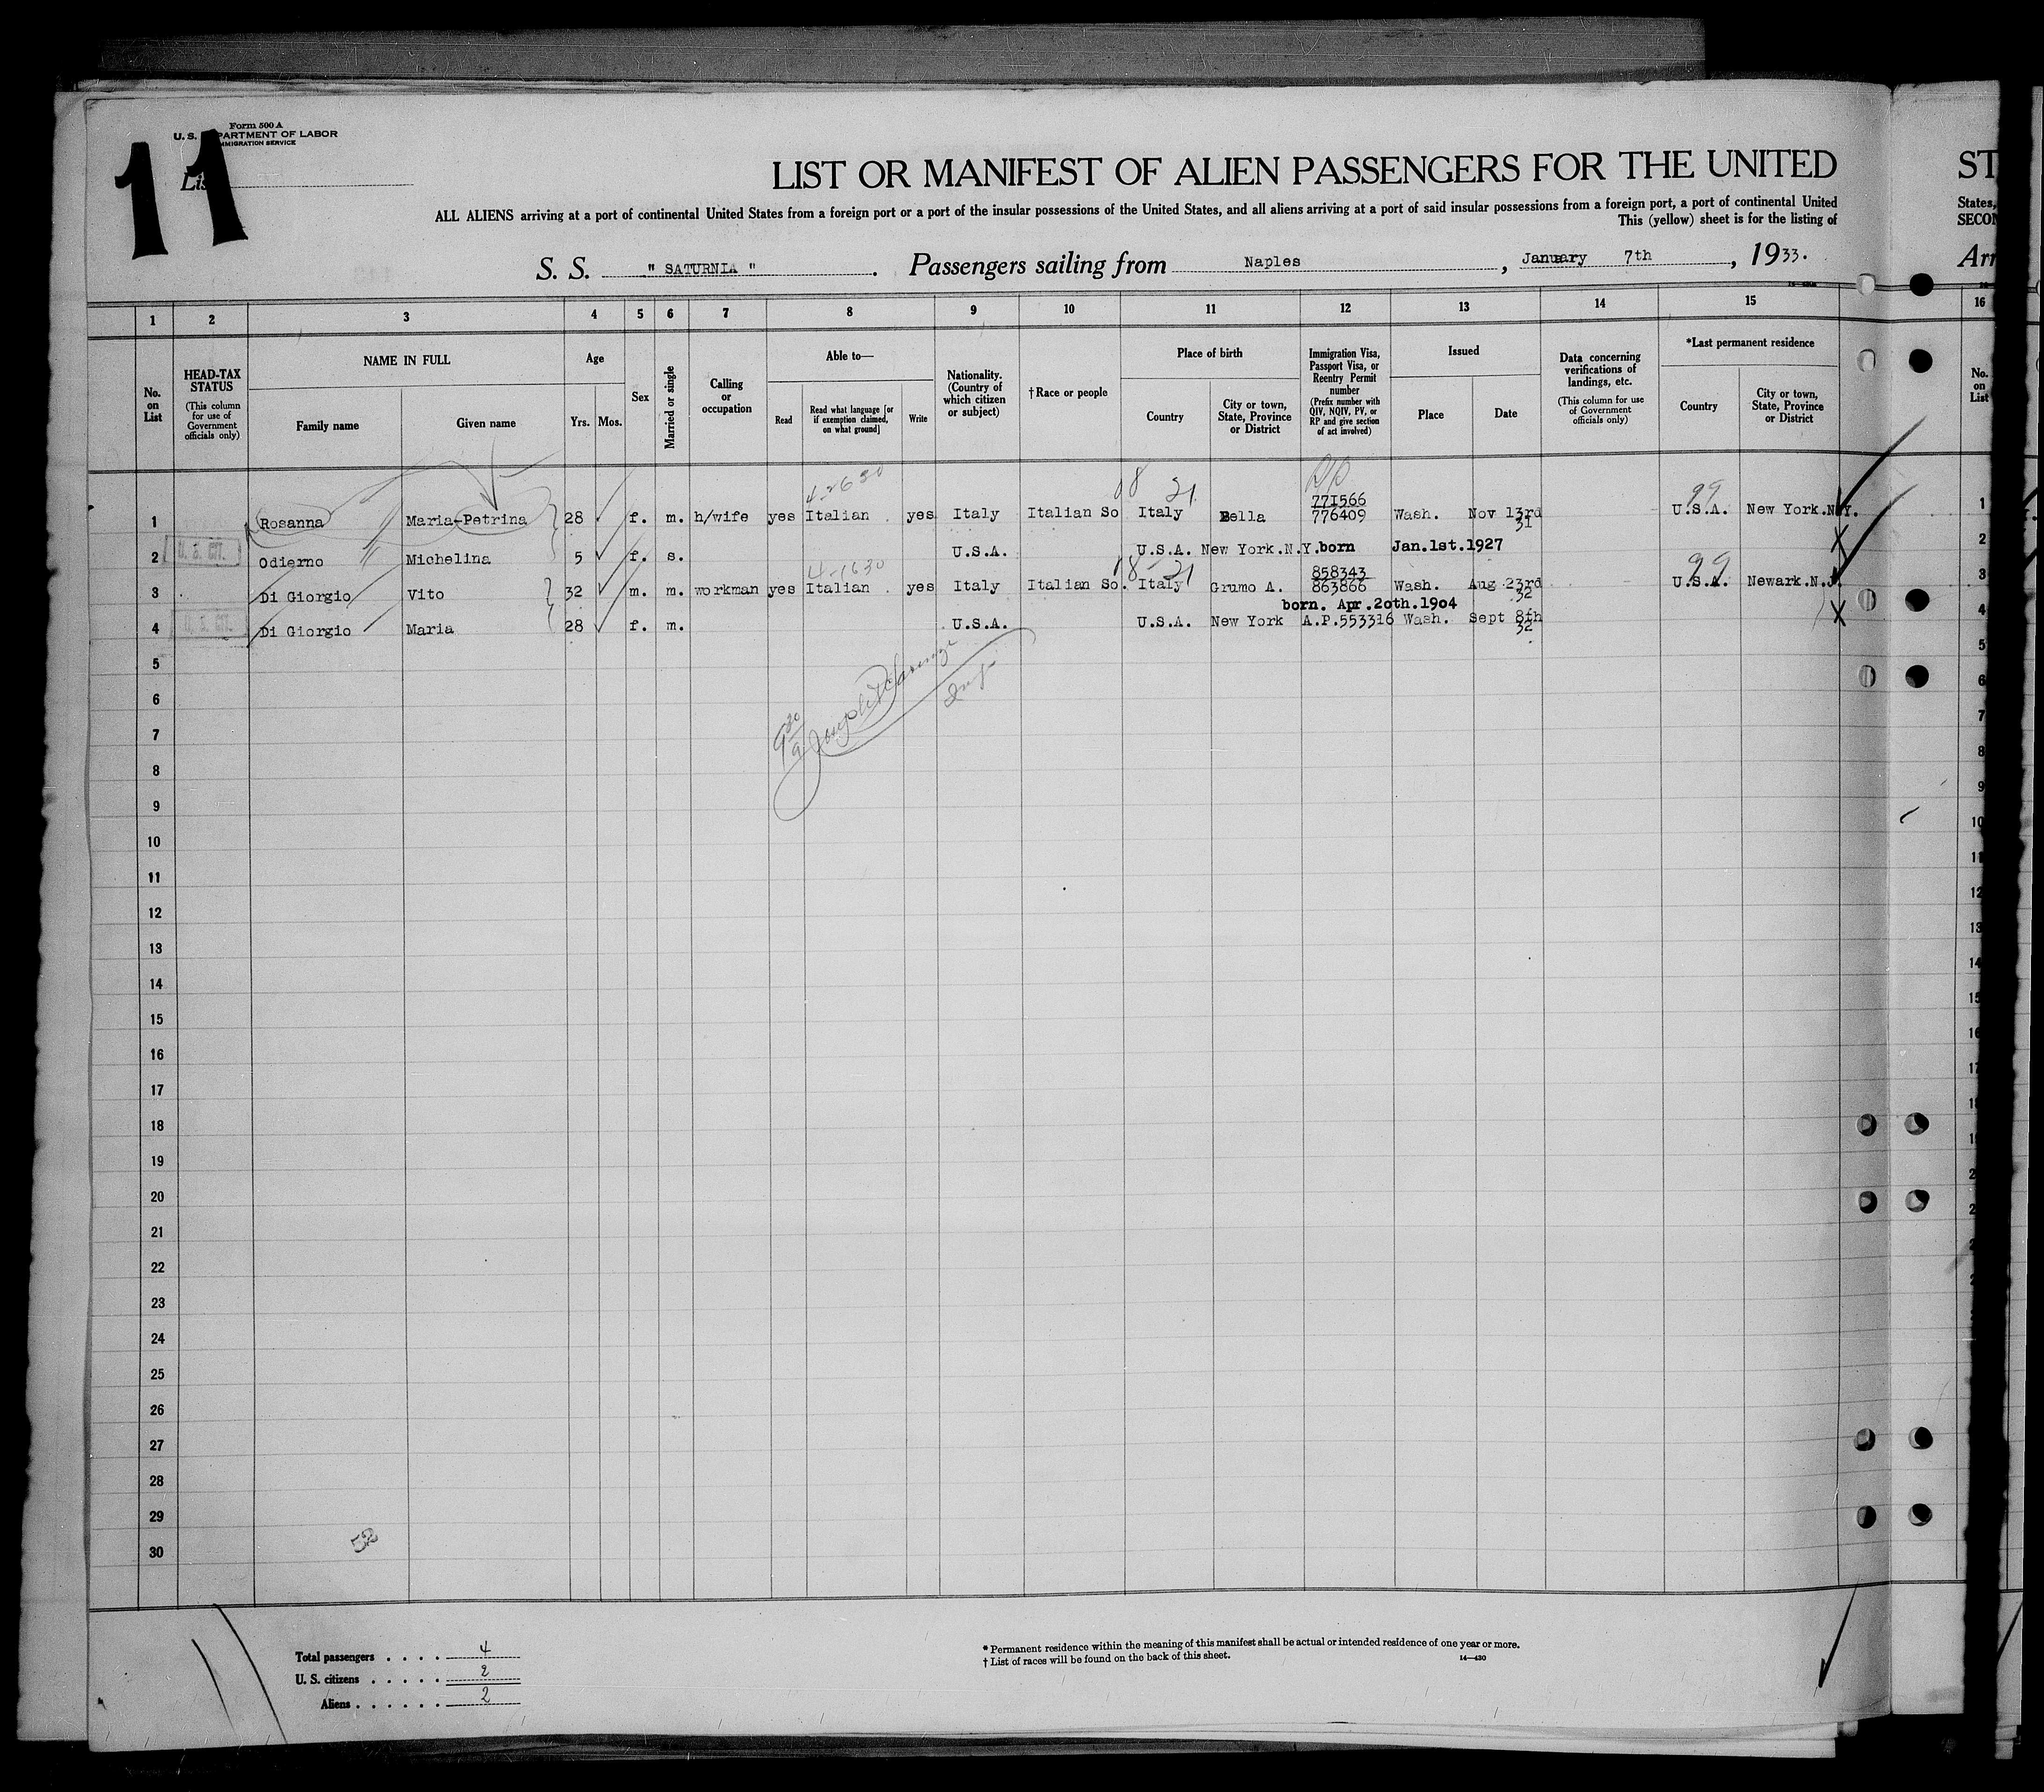 Form 500 A
U. S. DEPARTMENT OF LABOR
IMMIGRATION SERVICE
11
List
LIST OR MANIFEST OF ALIEN PASSENGERS FOR THE UNITED
ST
ALL ALIENS arriving at a port of continental United States from a foreign port or a port of the insular possessions of the United States, and all aliens arriving at a port of said insular possessions from a foreign port, a port of continental United
States,
This (yellow) sheet is for the listing of
SECON
S. S. " SATURNIA " . Passengers sailing from Naples , January 7th , 1933.
Arr
1 2 3 4 5 6 7 8 9 10 11 12 13 14 15 16
No. on List
HEAD-TAX STATUS
(This column for use of Government officials only)
NAME IN FULL
Family name Given name
Age
Yrs. Mos.
Sex
Married or single
Calling or occupation
Able to—
Read
Read what language [or if exemption claimed, on what ground]
Write
Nationality. (Country of which citizen or subject)
†Race or people
Place of birth
Country
City or town, State, Province or District
Immigration Visa, Passport Visa, or Reentry Permit number
(Prefix number with QIV, NQIV, PV, or RP and give section of act involved)
Issued
Place Date
Data concerning verifications of landings, etc.
(This column for use of Government officials only)
*Last permanent residence
Country
City or town, State, Province or District
No. on List
771566
1 Rosanna Maria-Petrina 28 f. m. h/wife yes Italian . yes Italy Italian So Italy Bella 776409 Wash. Nov 13rd 31 U.S.A. New York.N.Y. 1
2 U. S. CIT. Odierno Michelina 5 f. s. U.S.A. U.S.A. New York.N.Y. born Jan.1st.1927 2
858343
3 Di Giorgio Vito 32 m. m. workman yes Italian . yes Italy Italian So. Italy Grumo A. 863866 Wash. Aug 23rd 32 U.S.A. Newark.N.J. 3
born. Apr.20th.1904
4 U. S. CIT. Di Giorgio Maria 28 f. m. U.S.A. U.S.A. New York A.P.553316 Wash. Sept 8th 32 4
5 5
6 6
7 7
8 8
9 9
10 10
11 11
12 12
13 13
14 14
15 15
16 16
17 17
18
19
20
21
22
23
24
25
26
27
28
29
30
52
Total passengers . . . . 4
U. S. citizens . . . . . 2
Aliens . . . . . . 2
* Permanent residence within the meaning of this manifest shall be actual or intended residence of one year or more.
† List of races will be found on the back of this sheet.
14—430